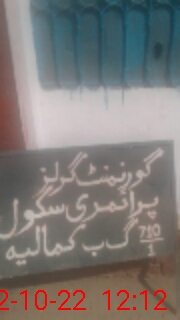 گورنمنٹ گرلز
پرائمری سکول
710/1 گ ب کمالیہ
2-10-22 12:12